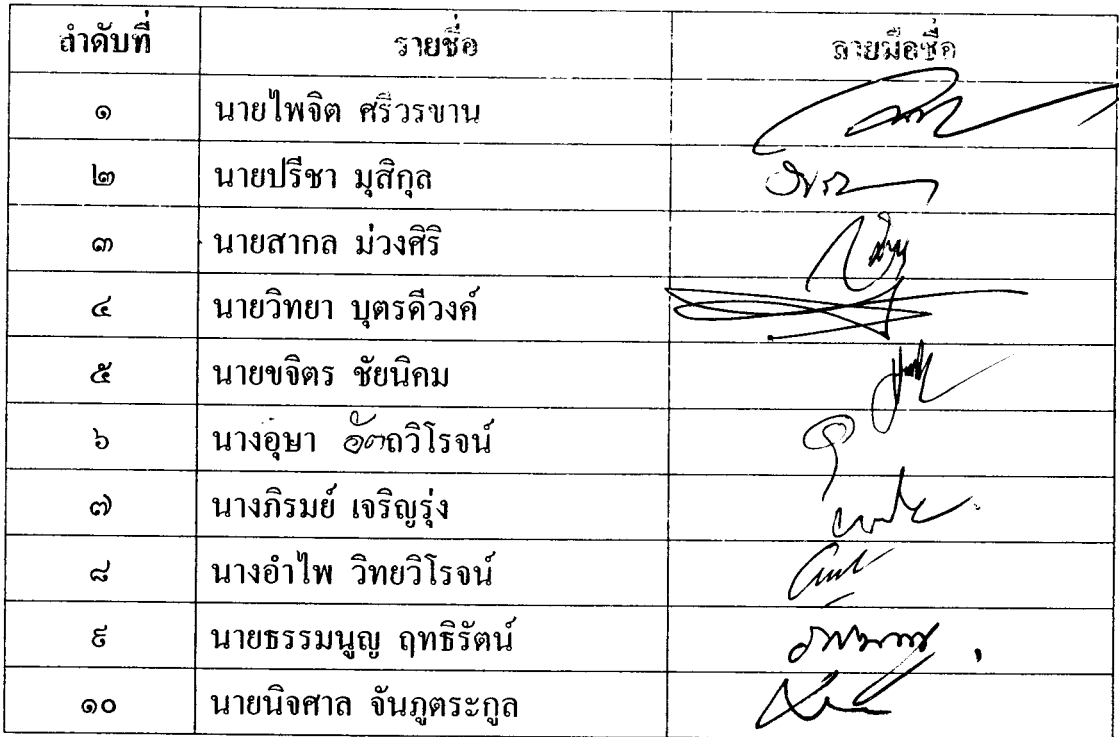 ลำดับที่ รายชื่อ ลายมือชื่อ
๑ นายไพจิต ศรีวรขาน
๒ นายปรีชา มุสิกุล
๓ นายสากล ม่วงศิริ
๔ นายวิทยา บุตรดีวงค์
๕ นายขจิตร ชัยนิคม
๖ นางอุษา อัตถวิโรจน์
๗ นางภิรมย์ เจริญรุ่ง
๘ นางอำไพ วิทยวิโรจน์
๙ นายธรรมนูญ ฤทธิรัตน์
๑๐ นายนิจศาล จันภูตระกูล